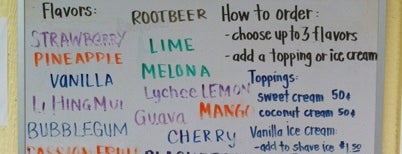 Flavors:
STRAWBERRY
PINEAPPLE
VANILLA
Li HING Mui
BUBBLEGUM
PASSION FRUIT
ROOTBEER
LIME
MELONA
Lychee LEMON
Guava MANGO
CHERRY
How to order:
- choose up to 3 flavors
- add a topping or ice cream
Toppings:
sweet cream 50¢
coconut cream 50¢
Vanilla Ice Cream:
- add to shave ice $1.50